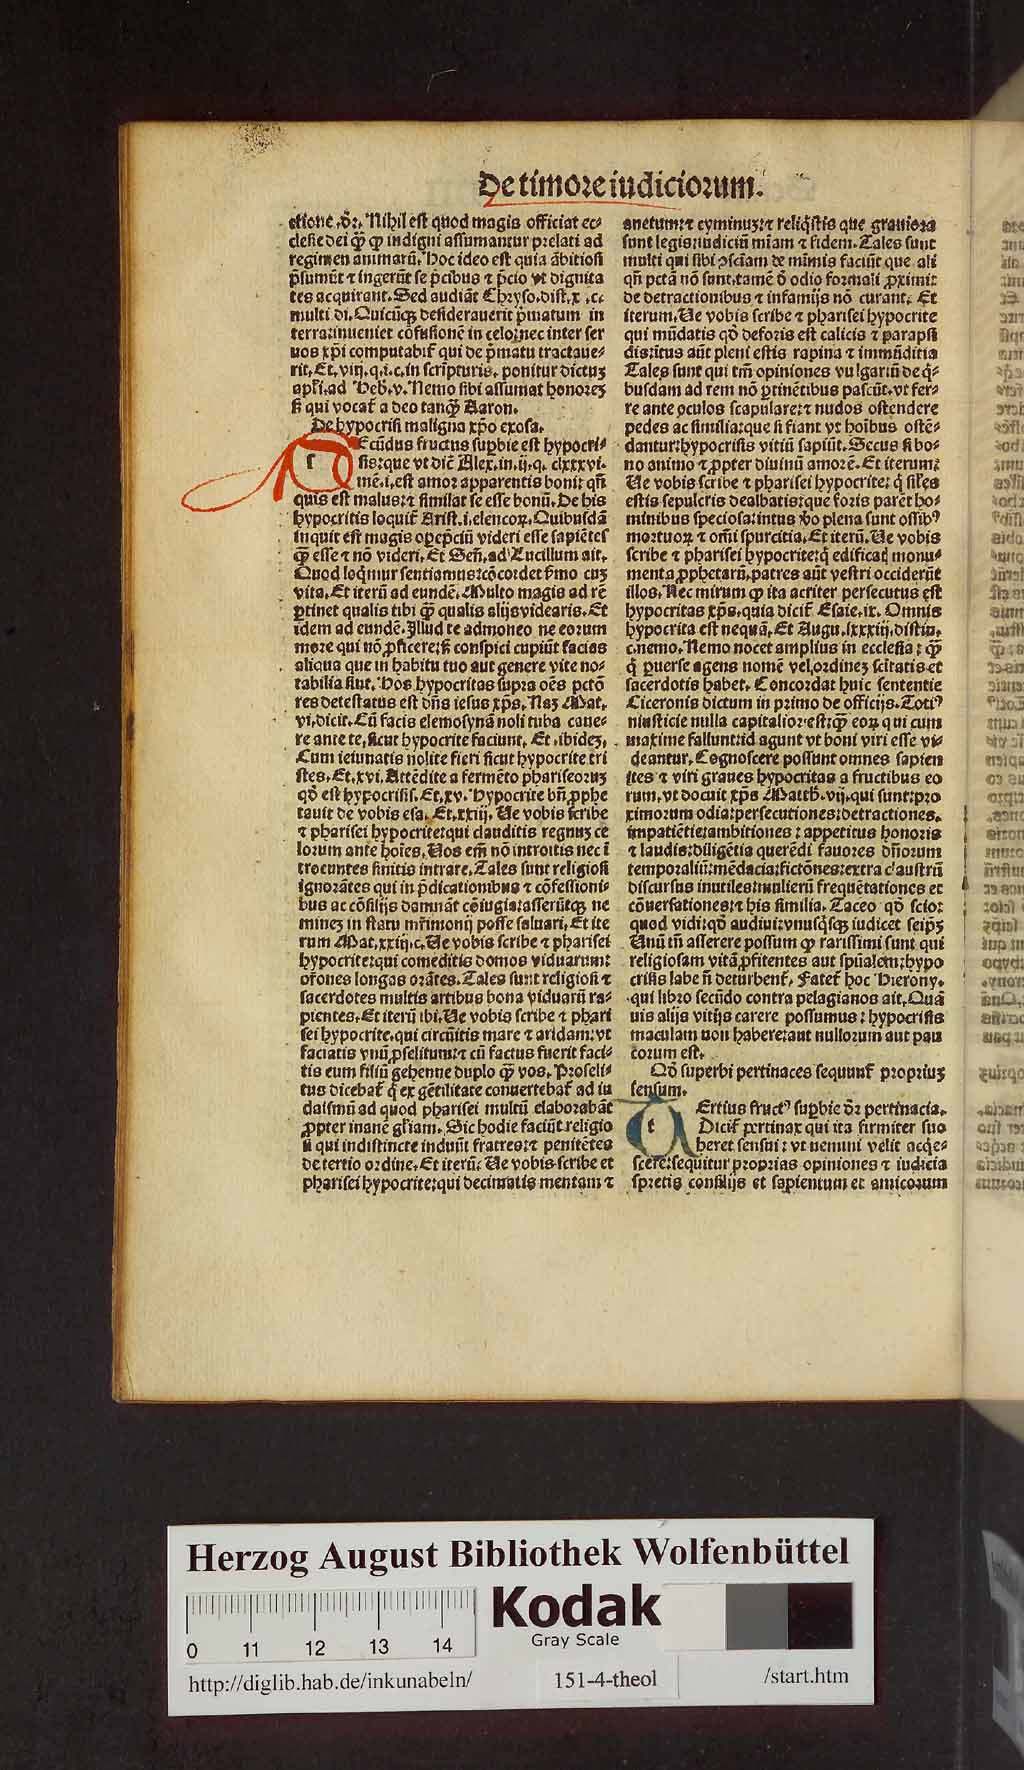 De timore iudiciorum.
ctione .dr̄. Nihil est quod magis officiat ec-
clesie dei q̄ꝫ ꝙ indigni assumantur prelati ad
regimen animarū. Hoc ideo est quia ābitiosi
p̄sumūt ⁊ ingerūt se p̄cibus ⁊ p̄cio vt dignita
tes acquirant. Sed audiāt Chryso. dist. x .c.
multi di. Quicūqꝫ desiderauerit p̄matum in
terra: inueniet cōfusionē in celo: nec inter ser
uos xp̄i computabit̄ qui de p̄matu tractaue-
rit. Et. viij. q. i. c. in scripturis. ponitur dictuꝫ
apl̄i. ad Heb. v. Nemo sibi assumat honoreꝫ
ß qui vocat̄ a deo tanq̄ꝫ Aaron.
De hypocrisi maligna xp̄o exosa.
Ecūdus fructus suꝑbie est hypocri-
sis: que vt diē Alex. in. ij. q. clxxxvi.
mē. i. est amor apparentis boni: qn̄
quis est malus: ⁊ similat se esse bonū. De his
hypocritis loquit̄ Arist. i. elencoꝝ. Quibusdā
inquit est magis oꝑep̄ciū videri esse sapiētes
q̄ꝫ esse ⁊ nō videri. Et Señ. ad Lucillum ait.
Quod loq̄mur sentiamus: cōcordet s̄mo cuꝫ
vita. Et iterū ad eundē. Multo magis ad rē
ꝑtinet qualis tibi q̄ꝫ qualis alijs videaris. Et
idem ad eundē. Illud te admoneo ne eorum
more qui nō ꝓficere: ß conspici cupiūt facias
aliqua que in habitu tuo aut genere vite no-
tabilia sint. Hos hypocritas supra oēs pctō
res detestatus est dn̄s iesus xp̄s. Naꝫ Mat.
vi. dicit. Cū facis elemosynā noli tuba cane-
re ante te, sicut hypocrite faciunt. Et .ibideꝫ.
Cum ieiunatis nolite fieri sicut hypocrite tri
stes. Et. xvi. Attēdite a fermēto phariseoruꝫ
qd̄ est hypocrisis. Et. xv. Hypocrite bn̄ ꝓphe
tauit de vobis esa. Et. xxiij. Ue vobis scribe
⁊ pharisei hypocrite: qui clauditis regnuꝫ ce
lorum ante hoīes. Uos em̄ nō introitis nec ī
troeuntes sinitis intrare. Tales sunt religiosi
ignorātes qui in p̄dicationibus ⁊ cōfessioni-
bus ac cōsilijs damnāt cōiugia: asserūtqꝫ ne
mineꝫ in statu mr̄imonij posse saluari. Et ite
rum Mat. xxiij. c. Ue vobis scribe ⁊ pharisei
hypocrite: qui comeditis domos viduarum:
or̄ones longas orātes. Tales sunt religiosi ⁊
sacerdotes multis artibus bona viduarū ra-
pientes. Et iterū ibi. Ue vobis scribe ⁊ phari
sei hypocrite, qui circūitis mare ⁊ aridam: vt
faciatis vnū ꝓselitum: ⁊ cū factus fuerit faci-
tis eum filiū gehenne duplo q̄ꝫ vos. Proseli-
tus dicebat̄ q̄ ex gētilitate conuertebat̄ ad iu
daismū ad quod pharisei multū elaborabāt
ꝓpter inanē gl̄iam. Sic hodie faciūt religio
si qui indistincte induūt fratres: ⁊ penitētes
de tertio ordine. Et iterū: Ue vobis scribe et
pharisei hypocrite: qui decimatis mentam ⁊
anetum: ⁊ cyminuꝫ: ⁊ reliq̄stis que grauiora
sunt legis: iudiciū mīam ⁊ fidem. Tales sunt
multi qui sibi ꝯsciam de mīmis faciūt que ali
qn̄ pctā nō sunt. tamē ō odio formali ꝓximi:
de detractionibus ⁊ infamijs nō curant. Et
iterum. Ue vobis scribe ⁊ pharisei hypocrite
qui mūdatis qd̄ deforis est calicis ⁊ parapsi
dis: itus aūt pleni estis rapina ⁊ immūditia
Tales sunt qui tm̄ opiniones vulgariū de q̄-
busdam ad rem nō ꝑtinētibus pascūt. vt fer-
re ante oculos scapulare: ⁊ nudos ostendere
pedes ac similia: que si fiant vt hoībus ostē-
dantur: hypocrisis vitiū sapiūt. Secus si bo-
no animo ⁊ ꝓpter diuinū amorē. Et iterum:
Ue vobis scribe ⁊ pharisei hypocrite: q̄ sil̄es
estis sepulcris dealbatis: que foris parēt ho-
minibus speciosa: intus ꝟo plena sunt ossibꝰ
mortuoꝝ ⁊ om̄i spurcitia. Et iterū. Ue vobis
scribe ⁊ pharisei hypocrite: q̄ edificatꝭ monu-
menta ꝓphetarū. patres aūt vestri occiderūt
illos. Nec mirum ꝙ ita acriter persecutus est
hypocritas xp̄s. quia dicit̄ Esaie. ix. Omnis
hypocrita est nequā. Et Augu. lxxxiij. distin.
c. nemo. Nemo nocet amplius in ecclesia: q̄ꝫ
q̄ ꝑuerse agens nomē vel ordineꝫ scītatis et
sacerdotis habet. Concordat huic sententie
Ciceronis dictum in primo de officijs. Totiꝰ
niusticie nulla capitalior est: q̄ꝫ eoꝝ qui cum
maxime fallunt: id agunt vt boni viri esse vi-
deantur. Cognoscere possunt omnes sapien
tes ⁊ viri graues hypocritas a fructibus eo
rum. vt docuit xp̄s Matth. vij. qui sunt: pro
ximorum odia: persecutiones: detractiones.
impatiētie: ambitiones: appetitus honoris
⁊ laudis: diligētia querēdi fauores dn̄orum
temporaliū: mēdacia: fictōnes: extra claustrū
discursus inutiles: mulierū frequētationes et
cōuersationes: ⁊ his similia. Taceo qd̄ scio:
quod vidi: qd̄ audiui: vnusq̄sqꝫ iudicet seipꝫ
Unū tn̄ asserere possum ꝙ rarissimi sunt qui
religiosam vitā ꝓfitentes aut spūalem: hypo
crisis labe n̄ deturbent̄. Fatet̄ hoc Hierony.
qui libro secūdo contra pelagianos ait. Quā
uis alijs vitijs carere possumus: hypocrisis
maculam non habere: aut nullorum aut pau
corum est.
Qd̄ superbi pertinaces sequunt̄ propriuꝫ
sensum.
Ertius fructꝰ suꝑbie dr̄ pertinacia.
Dicit̄ ꝑertinax qui ita firmiter suo
heret sensui: vt nemini velit acqe-
scere: sequitur proprias opiniones ⁊ iudicia
spretis consilijs et sapientum et amicorum
Herzog August Bibliothek Wolfenbüttel
Kodak
Gray Scale
0 11 12 13 14
http://diglib.hab.de/inkunabeln/ 151-4-theol /start.htm